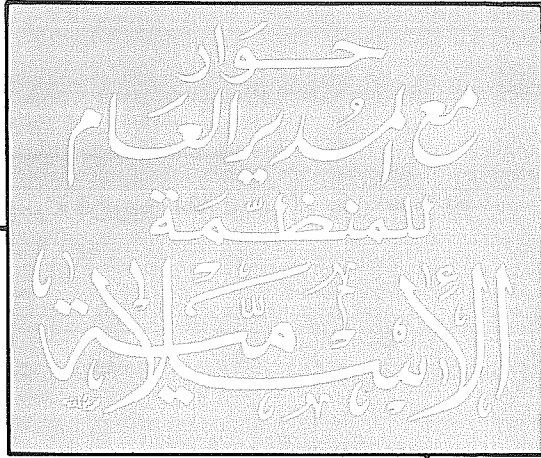 حوار
مع المدير العام
للمنظمة
الإسلامية